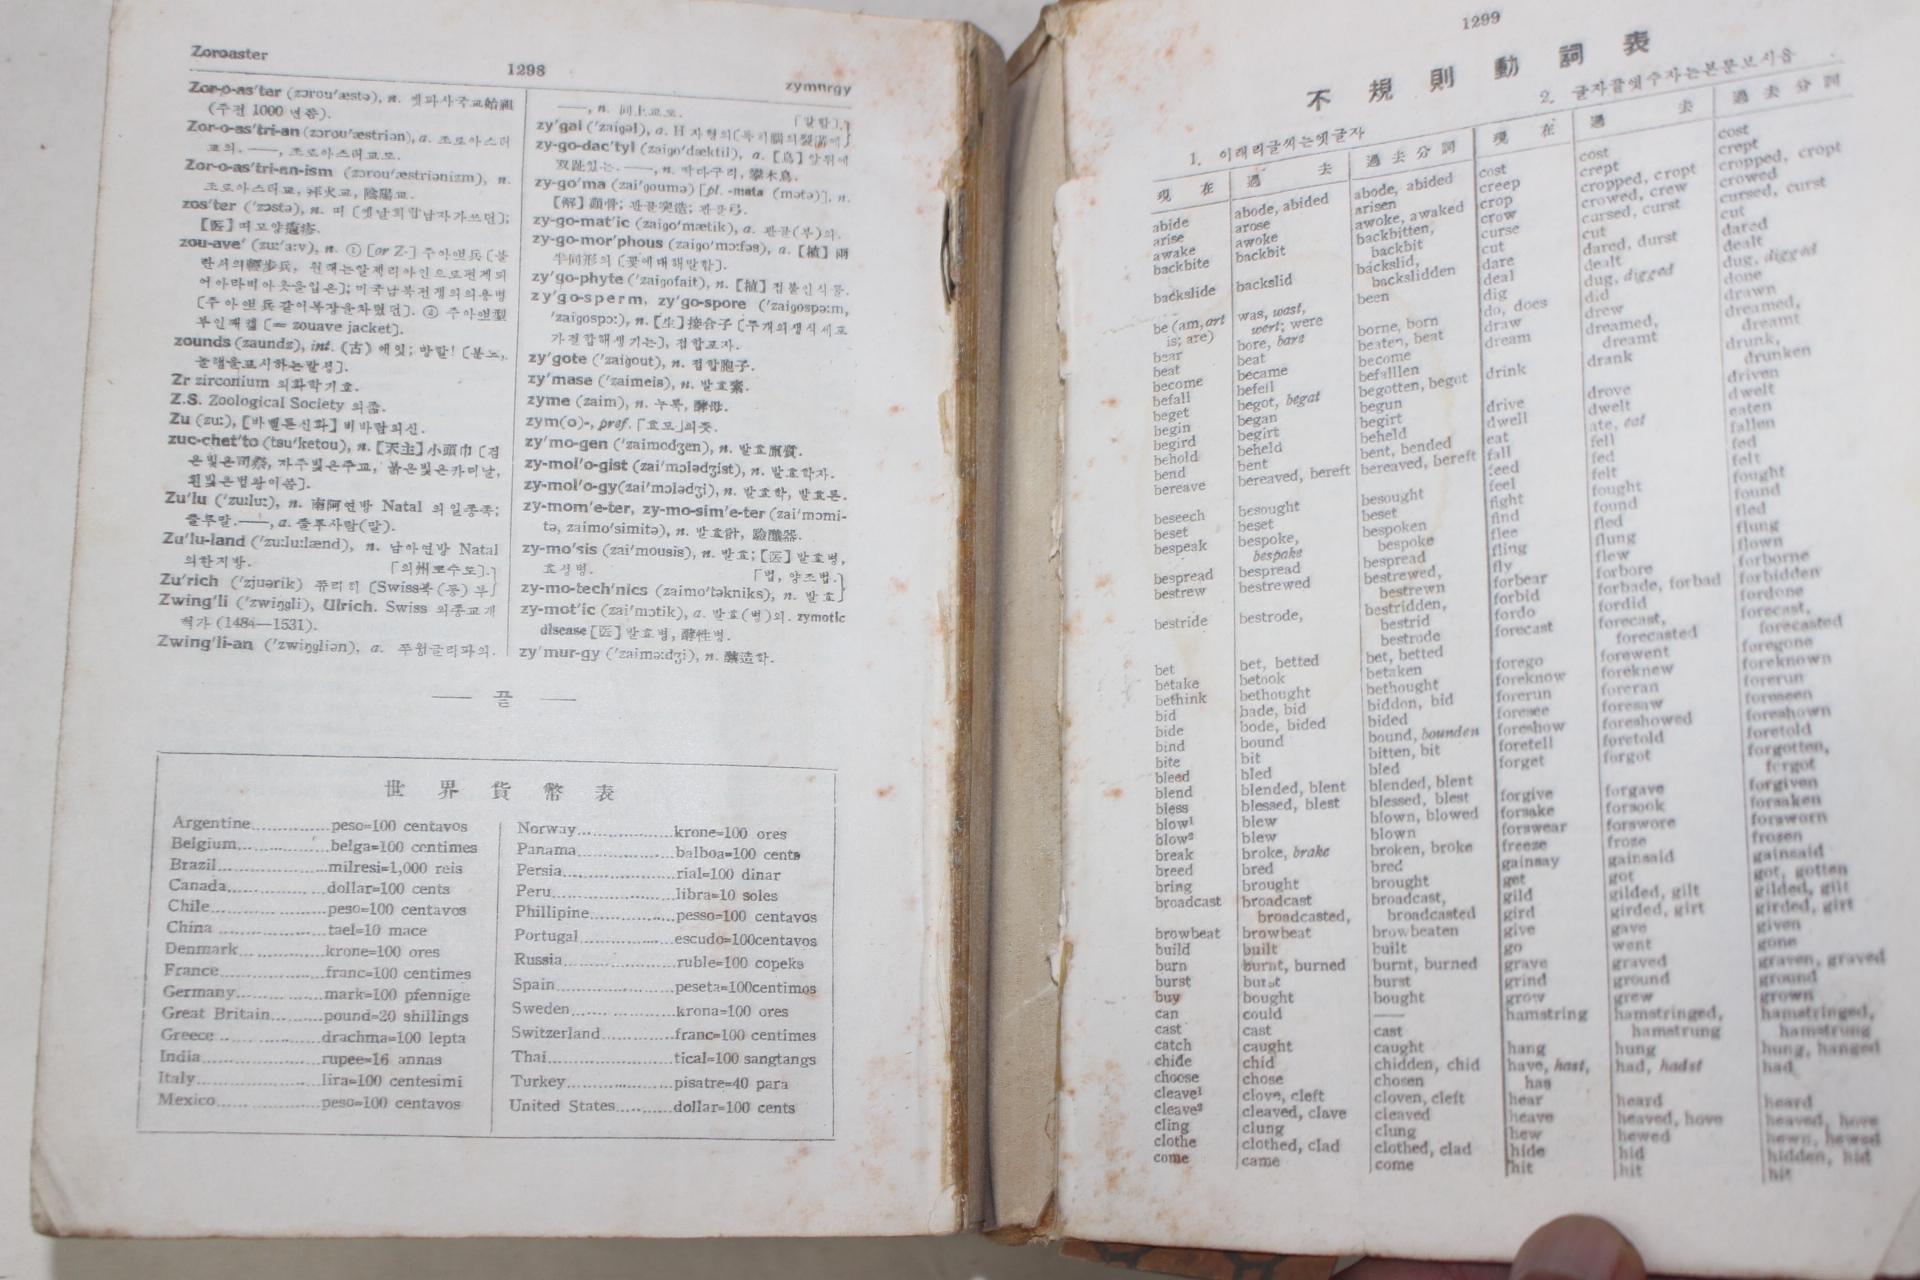 Zoroaster
1298
zymurgy
Zor-o-as'ter
(주전 1000 년쯤).
Zor-o-as'tri-an
Zor-o-as'tri-an-ism
조로아스터교, 拜火교, 陰陽교.
zos'ter
zou-ave'
부인째켙 [= zouave jacket].
zounds (zaundz), int. (古)
Zr zirconium 의화학기호.
Z.S. Zoological Society 의줄.
Zu (zu:), [바벨론신화] 비바람의신.
zuc-chet'to (tsu'ketou), n. [天主] 小頭巾
Zu'lu ('zu:lu:), n. 南阿연방 Natal 의일종족;
줄루말. ——, a. 줄루사람(말).
Zu'lu-land ('zu:lu:lænd), n. 남아연방 Natal
의한지방.
Zu'rich ('zjuərik) 쮸리히 [Swiss북(동)부
Zwing'li ('zwiŋgli), Ulrich. Swiss 의종교개
혁가 (1484—1531).
Zwing'li-an ('zwiŋgliən), a. 쭈윙글리파의.
——, n. 同上교도.
zy'gal ('zaigəl), a.
zy-go-dac'tyl (zaigo'dæktil), a. [鳥]
zy-go'ma (zai'goumə) [pl. -mata (mətə)], n.
[解] 顴骨; 관골突起; 관골弓.
zy-go-mat'ic (zaigo'mætik), a. 관골(부)의.
zy-go-mor'phous (zaigo'mɔ:fəs), a. [植]
zy'go-phyte ('zaigofait), n. [植] 접붙인식물.
zy'go-sperm, zy'go-spore ('zaigospə:m,
'zaigospɔ:), n. [生] 接合子
zy'gote ('zaigout), n. 접합胞子.
zy'mase ('zaimeis), n. 발효素.
zyme (zaim), n. 누룩, 酵母.
zym(o)-, pref. 「효모」의뜻.
zy'mo-gen ('zaimodʒen), n. 발효原質.
zy-mol'o-gist (zai'mɔlədʒist), n. 발효학자.
zy-mol'o-gy (zai'mɔlədʒi), n. 발효학, 발효론.
zy-mom'e-ter, zy-mo-sim'e-ter (zai'mɔmi-
tə, zaimo'simitə), n. 발효計, 驗釀器.
zy-mo'sis (zai'mousis), n. 발효; [医] 발효병,
효성병.
「법, 양조법.
zy-mo-tech'nics (zaimo'tekniks), n. 발효
zy-mot'ic (zai'mɔtik), a. 발효(병)의. zymotic
disease [医] 발효병, 酵性병.
zy'mur-gy ('zaimə:dʒi), n. 釀造학.
—— 끝 ——
世界貨幣表
Argentine............peso=100 centavos
Belgium............belga=100 centimes
Brazil............milresi=1,000 reis
Canada............dollar=100 cents
Chile............peso=100 centavos
China............tael=10 mace
Denmark............krone=100 ores
France............franc=100 centimes
Germany............mark=100 pfennige
Great Britain............pound=20 shillings
Greece............drachma=100 lepta
India............rupee=16 annas
Italy............lira=100 centesimi
Mexico............peso=100 centavos
Norway............krone=100 ores
Panama............balboa=100 cents
Persia............rial=100 dinar
Peru............libra=10 soles
Phillipine............pesso=100 centavos
Portugal............escudo=100centavos
Russia............ruble=100 copeks
Spain............peseta=100centimos
Sweden............krona=100 ores
Switzerland............franc=100 centimes
Thai............tical=100 sangtangs
Turkey............pisatre=40 para
United States............dollar=100 cents
1299
不規則動詞表
1. 이태리글씨는옛글자
2. 글자끝엣수자는본문보시옵
現在 過去 過去分詞
abide abode, abided abode, abided
arise arose arisen
awake awoke awoke, awaked
backbite backbit backbitten,
backbit
backslide backslid backslid,
backslidden
be (am, art was, wast, been
is; are) wert; were
bear bore, bare borne, born
beat beat beaten, beat
become became become
befall befell befalllen
beget begot, begat begotten, begot
begin began begun
begird begirt begirt
behold beheld beheld
bend bent bent, bended
bereave bereaved, bereft bereaved, bereft
beseech besought besought
beset beset beset
bespeak bespoke, bespoken
bespake bespoke
bespread bespread bespread
bestrew bestrewed bestrewed,
bestrewn
bestride bestrode, bestridden,
bestrid
bestrode
bet bet, betted bet, betted
betake betook betaken
bethink bethought bethought
bid bade, bid bidden, bid
bide bode, bided bided
bind bound bound, bounden
bite bit bitten, bit
bleed bled bled
blend blended, blent blended, blent
bless blessed, blest blessed, blest
blow¹ blew blown, blowed
blow² blew blown
break broke, brake broken, broke
breed bred bred
bring brought brought
broadcast broadcast broadcast,
broadcasted, broadcasted
browbeat browbeat browbeaten
build built built
burn burnt, burned burnt, burned
burst burst burst
buy bought bought
can could ——
cast cast cast
catch caught caught
chide chid chidden, chid
choose chose chosen
cleave¹ clove, cleft cloven, cleft
cleave² cleaved, clave cleaved
cling clung clung
clothe clothed, clad clothed, clad
come came come
現在 過去 過去分詞
cost cost cost
creep crept crept
crop cropped, cropt cropped, cropt
crow crowed, crew crowed
curse cursed, curst cursed, curst
cut cut cut
dare dared, durst dared
deal dealt dealt
dig dug, digged dug, digged
do, does did done
draw drew drawn
dream dreamed, dreamed,
dreamt dreamt
drink drank drunk,
drunken
drive drove driven
dwell dwelt dwelt
eat ate, eat eaten
fall fell fallen
feed fed fed
feel felt felt
fight fought fought
find found found
flee fled fled
fling flung flung
fly flew flown
forbear forbore forborne
forbid forbade, forbad forbidden
fordo fordid fordone
forecast forecast, forecast,
forecasted forecasted
forego forewent foregone
foreknow foreknew foreknown
forerun foreran forerun
foresee foresaw foreseen
foreshow foreshowed foreshown
foretell foretold foretold
forget forgot forgotten,
forgot
forgive forgave forgiven
forsake forsook forsaken
forswear forswore forsworn
freeze froze frozen
gainsay gainsaid gainsaid
get got got, gotten
gild gilded, gilt gilded, gilt
gird girded, girt girded, girt
give gave given
go went gone
grave graved graven, graved
grind ground ground
grow grew grown
hamstring hamstringed, hamstringed,
hamstrung hamstrung
hang hung hung, hanged
have, hast, had, hadst had
has
hear heard heard
heave heaved, hove heaved, hove
hew hewed hewn, hewed
hide hid hidden, hid
hit hit hit